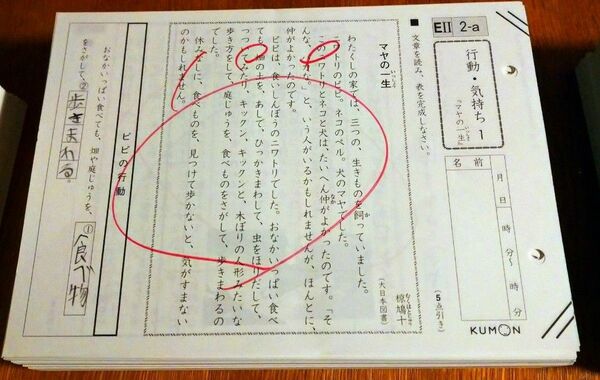 EII 2-a
行動・気持ち 1
『マヤの一生』
月 日 名前
時 分〜 時 分
KUMON
■ 文章を読み、表を完成しなさい。
(5点引き)
マヤの一生
椋鳩十
(大日本図書)
わたくしの家では、三つの、生きものを飼っていました。
ニワトリのピピ。ネコのペル。犬のマヤでした。
このニワトリとネコと犬は、たいへん仲がよかったのです。「そ
んな、 な」と、いう人がいるかもしれませんが、ほんとに、
仲がよかったのです。
ピピは、食いしんぼうのニワトリでした。おなかいっぱい食べ
ても、畑の土を、あしで、ひっかきまわして、虫をほりだして、
つっ みたり、キックン、キックンと、木ぼりの人形みたいな
歩き方をして、庭じゅうを、食べものをさがして、歩きまわるの
でした。
休みなしに、食べものを、見つけて歩かないと、気がすまない
のかもしれません。
ピピの行動
おなかいっぱい食べても、畑や庭じゅうを、①食べ物
をさがして、②歩きまわる。